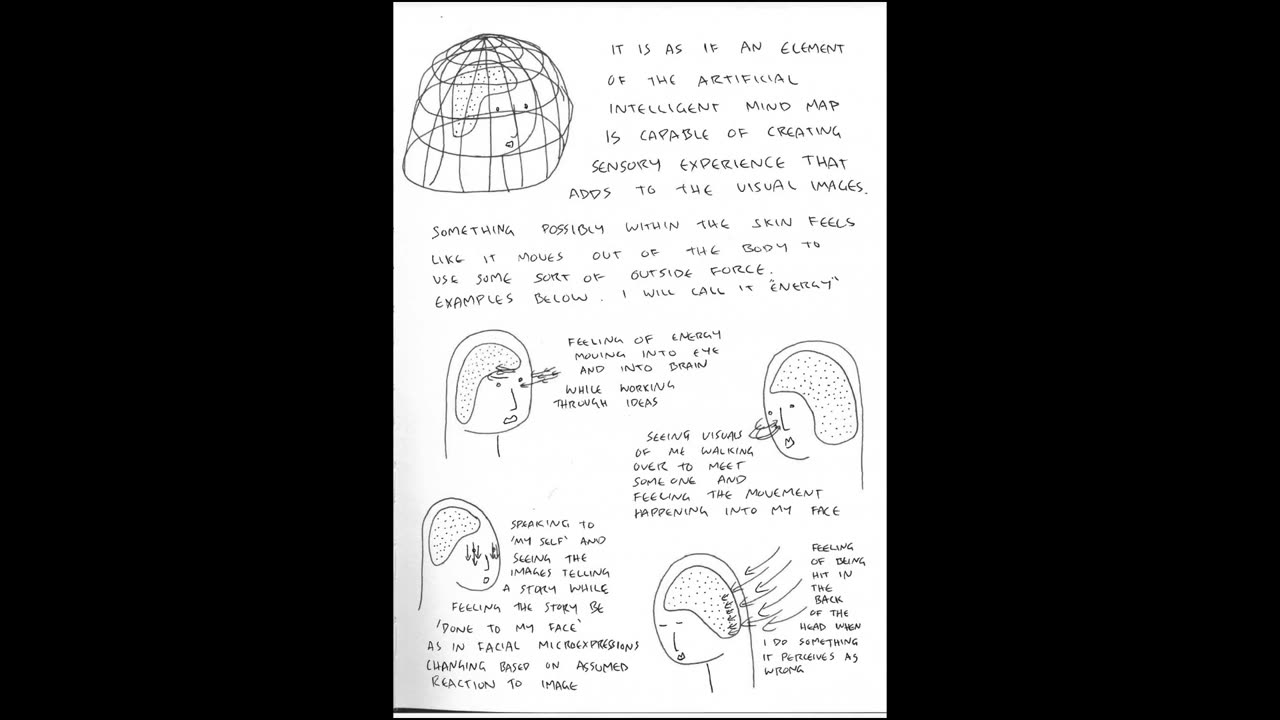 IT IS AS IF AN ELEMENT
OF THE ARTIFICIAL
INTELLIGENT MIND MAP
IS CAPABLE OF CREATING
SENSORY EXPERIENCE THAT
ADDS TO THE VISUAL IMAGES.
SOMETHING POSSIBLY WITHIN THE SKIN FEELS
LIKE IT MOVES OUT OF THE BODY TO
USE SOME SORT OF OUTSIDE FORCE.
EXAMPLES BELOW. I WILL CALL IT "ENERGY"
FEELING OF ENERGY
MOVING INTO EYE
AND INTO BRAIN
WHILE WORKING
THROUGH IDEAS
SEEING VISUALS
OF ME WALKING
OVER TO MEET
SOMEONE AND
FEELING THE MOVEMENT
HAPPENING INTO MY FACE
SPEAKING TO
'MY SELF' AND
SEEING THE
IMAGES TELLING
A STORY WHILE
FEELING THE STORY BE
'DONE TO MY FACE'
AS IN FACIAL MICROEXPRESSIONS
CHANGING BASED ON ASSUMED
REACTION TO IMAGE
FEELING
OF BEING
HIT IN
THE
BACK
OF THE
HEAD WHEN
I DO SOMETHING
IT PERCEIVES AS
WRONG